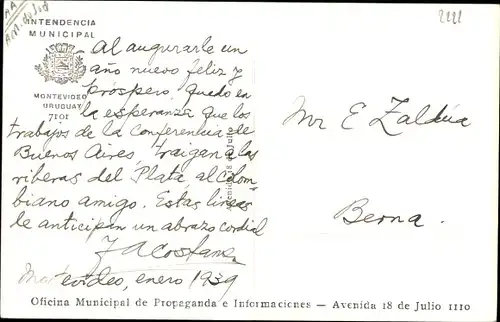 INTENDENCIA
MUNICIPAL
MONTEVIDEO
URUGUAY
7101
Al augurarle un
año nuevo feliz y
próspero, quedo en
la esperanza que los
trabajos de la Conferencia de
Buenos Aires traigan a las
riberas del Plata al colom-
biano amigo. Estas líneas
le anticipan un abrazo cordial
Montevideo, enero 1939
Mr E Zaldúa
Berna.
Avenida 18 de Julio
Oficina Municipal de Propaganda e Informaciones — Avenida 18 de Julio 1110